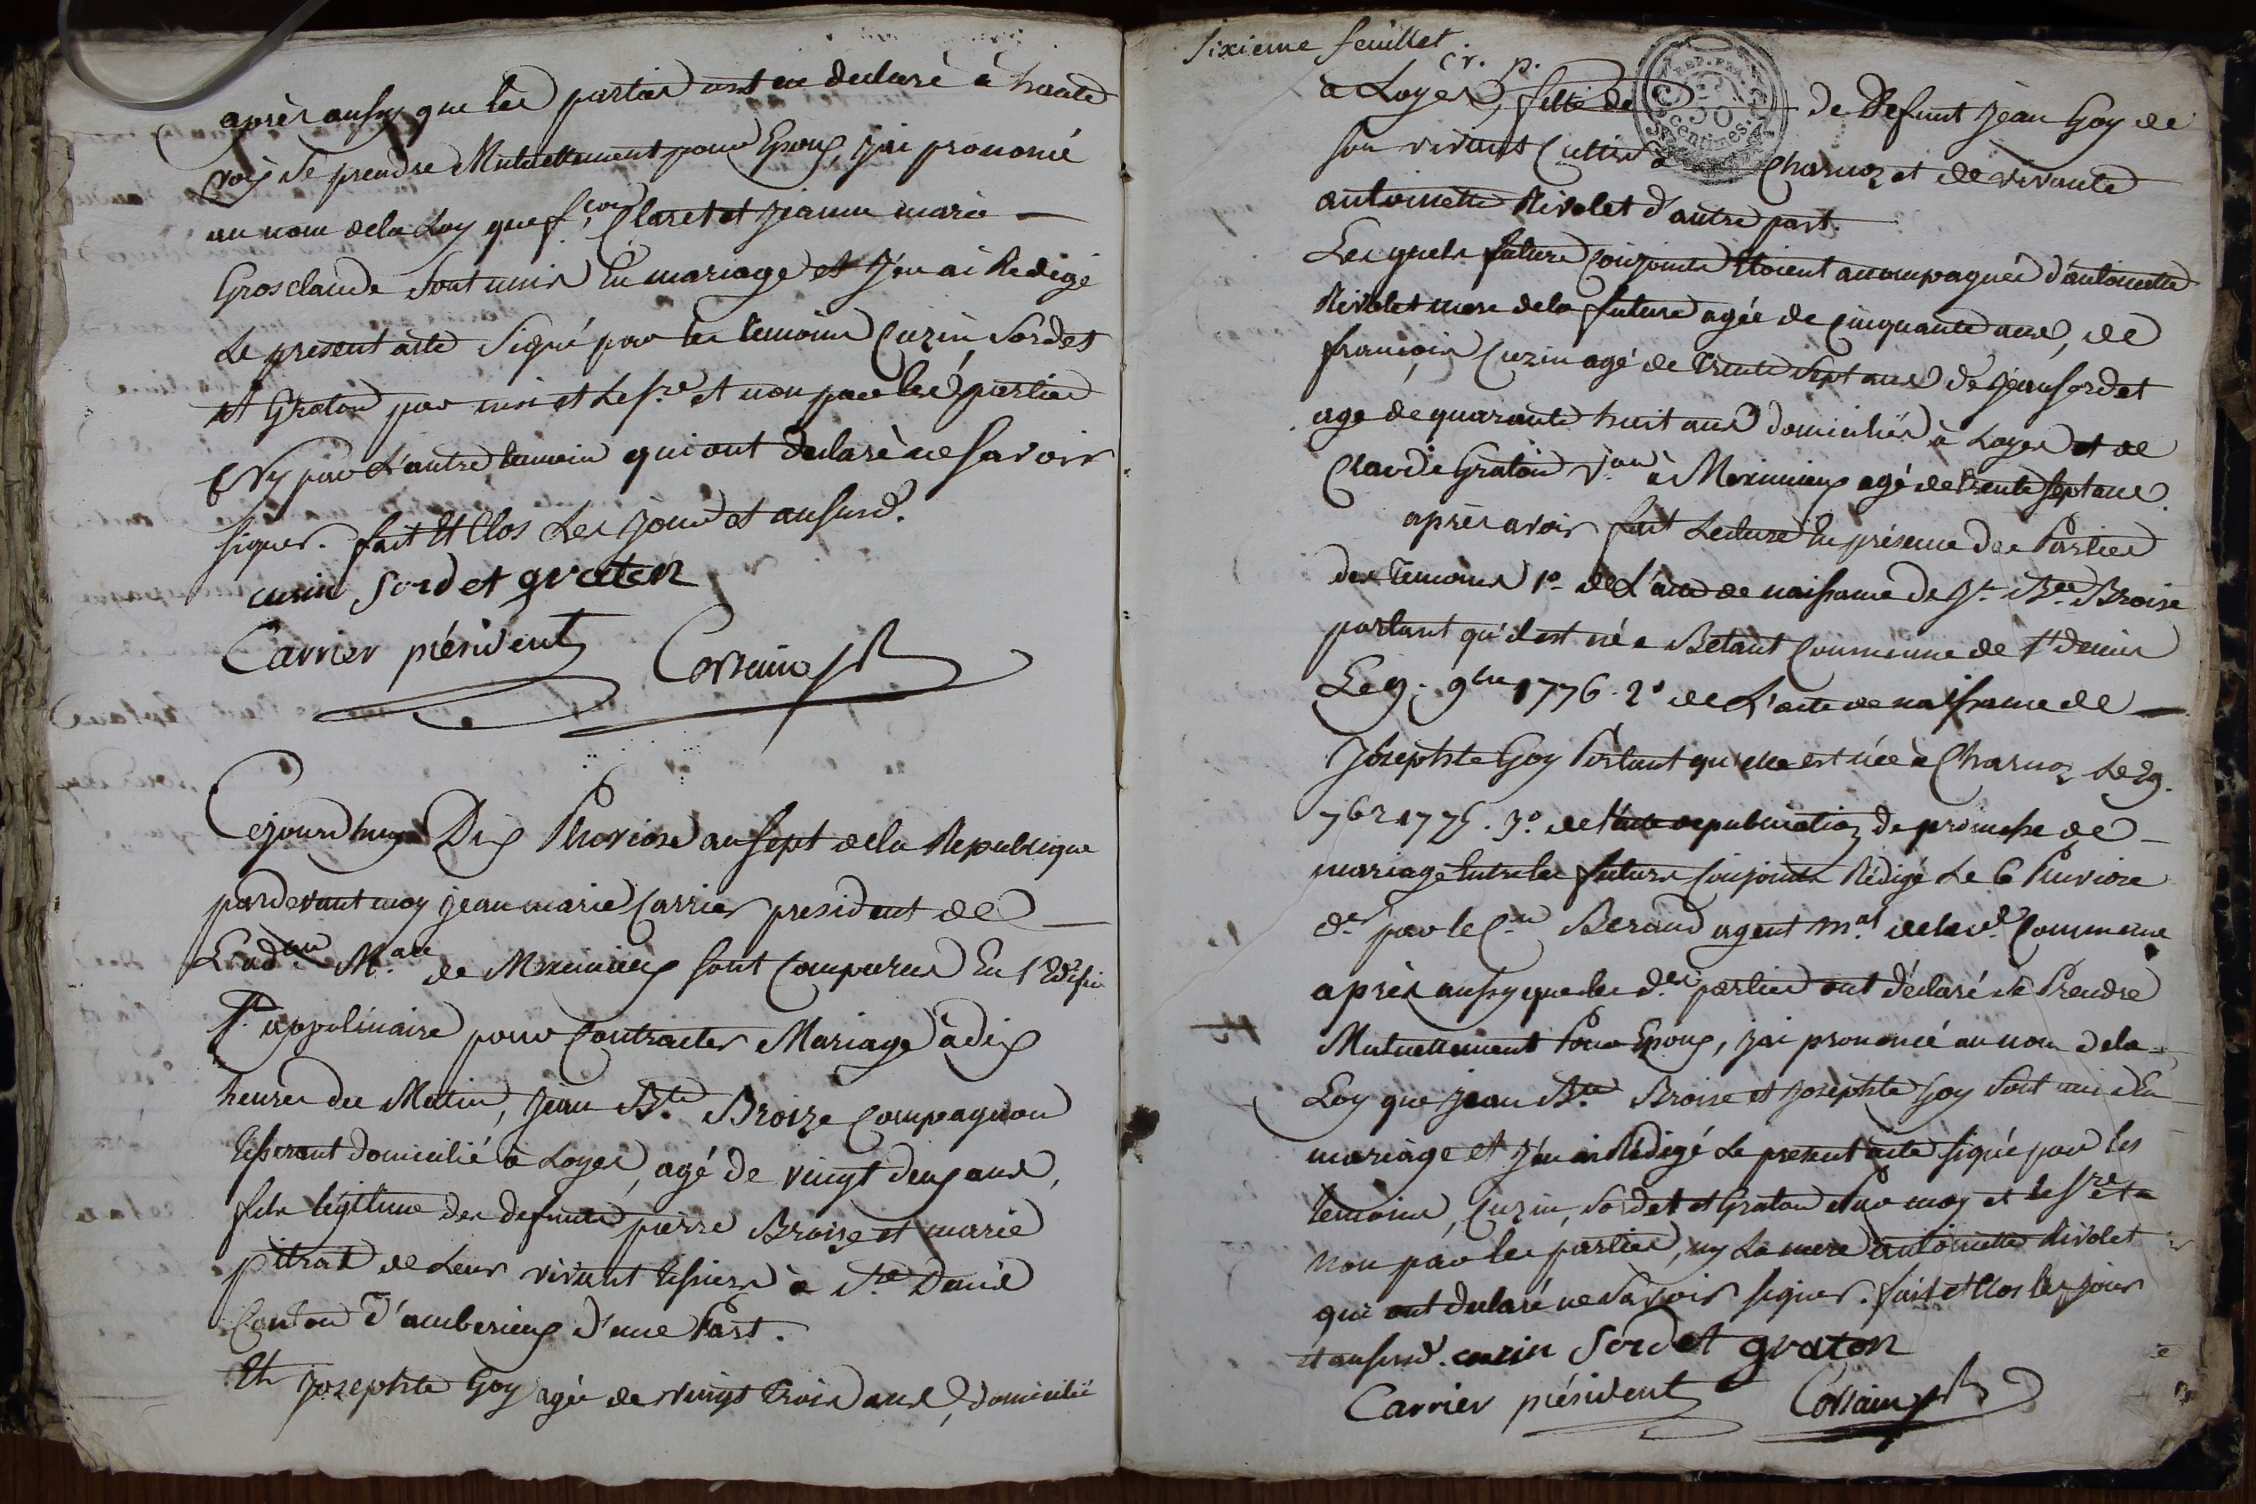 après aussy que les parties ont eu declaré à haute
voix se prendre Mutuellement pour Epoux, j'ai prononcé
au nom de la Loy que f.cois Claret et jeanne marie
Grosclaude Sont unis En mariage et j'en ai Redigé
Le present acte Signé par les temoins Cuzin Sordet
et Graton par moi et Le s.re et non par les parties
Ny par L'autre temoin qui ont declaré ne Savoir
signer. fait et Clos Les jour et an susd.
cusin Sordet graton
Carrier président Corsain
Cejourdhuy Dix Pluviose an Sept de la Republique
pardevant moy jean marie Carrier president de
L'ad.on M.ale de Meximieux sont Comparus En l'Edifice
S.t appolinaire pour Contracter Mariage à dix
heures du Matin, jean B.te Broize Compagnon
tisserant domicilié à Loyes, agé de vingt deux ans,
fils légitime des defunts pierre Broize et marie
pittrat de Leur vivant tissiers à S.t Denis
Canton d'amberieux d'une Part.
Et Josephte Goy agée de vingt trois ans, domicilié
Sixieme feuillet
Cr. p.
REP. FRA.
50
centimes.
à Loyes, fille de de Defunt jean Goy de
son vivant Cultiv.r à Charnoz et de vivante
antoinette Rivolet d'autre part.
Les quels futurs Conjoints Etoient accompagnés d'antoinette
Rivolet mere de la future agée de Cinquante ans, de
françois Cuzin agé de trente Sept ans de jean Sordet
agé de quarante huit ans domiciliés à Loyes et de
Claude Graton à Meximieux agé de trente Sept ans.
après avoir fait Lecture En présence des Parties
des temoins 1º de L'acte de naissance de J.n B.te Broize
portant qu'il est né a Betant Commune de S.t denis
Le 9. 9bre 1776. 2º de L'acte de naissance de
Josephte Goy Portant qu'elle est née à Charnoz Le 29.
7bre 1775. 3º de l'acte de publication de promesse de
mariage Entre les futurs Conjoints Rédigé Le 6 Pluviose
d.r par le C.en Beraud agent m.al de la d.e Commune
après aussy que les d.es parties ont déclaré se Prendre
Mutuellement Pour Epoux, j'ai prononcé au nom de la
Loy que jean B.te Broise et Josephte Goy Sont unis En
mariage et j'en ai Rédigé Le present acte signé par les
temoins, Cuzin, Sordet et Graton et par moy et le s.re et
non par les parties, ny La mere antoinette Rivolet
qui ont declaré ne Savoir signer. fait et Clos les jour
et an susd. cusin Sordet graton
Carrier président Corsain